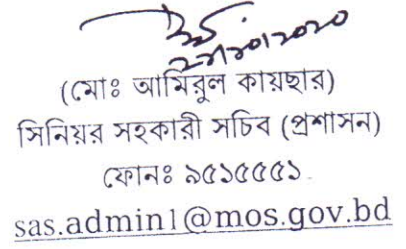 (মোঃ আমিরুল কায়ছার)
সিনিয়র সহকারী সচিব (প্রশাসন)
ফোনঃ ৯৫১৫৫৫১
sas.admin1@mos.gov.bd